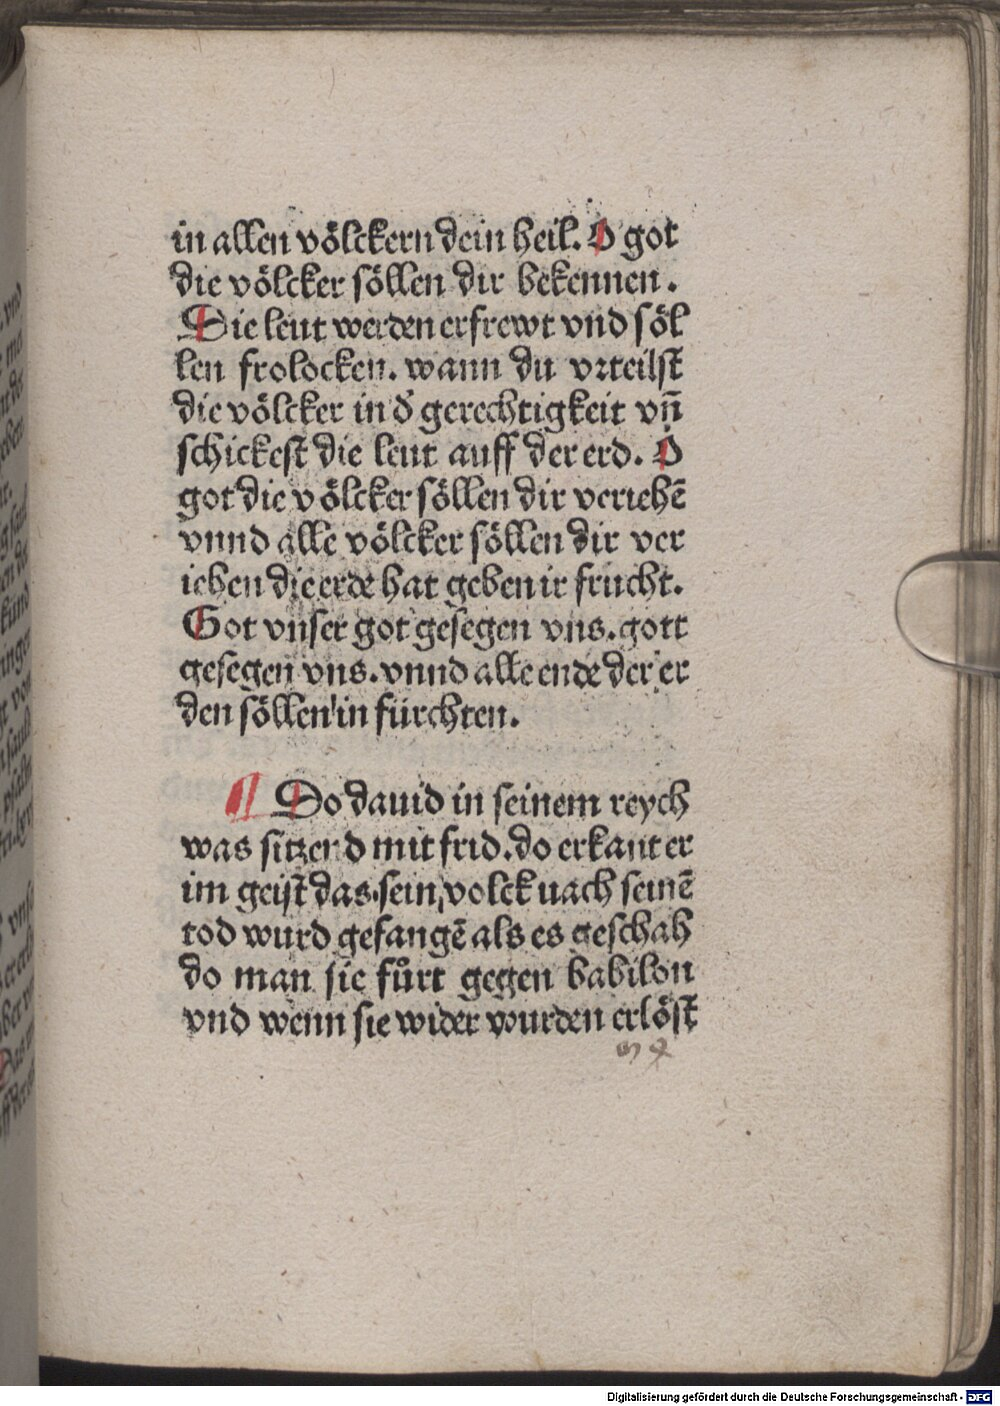 in allen völckern dein heil. O got
die völcker söllen dir bekennen.
Die leut werden erfrewt vnd söl
len frolocken. wann du vꝛteilst
die völcker in d̕ gerechtigkeit vn̄
schickest die leut auff der erd. O
got die völcker söllen dir veriehē
vnnd alle völcker söllen dir ver
iehen die erde hat geben ir frucht.
Got vnser got gesegen vns. gott
gesegen vns. vnnd alle ende der er
den söllen in fürchten.
¶ Do dauid in seinem reych
was sitzend mit frid. do erkant er
im geist das sein volck nach seinē
tod wurd gefangē als es geschah
do man sie fůrt gegen babilon
vnd wenn sie wider wurden erlöst
Digitalisierung gefördert durch die Deutsche Forschungsgemeinschaft - DFG